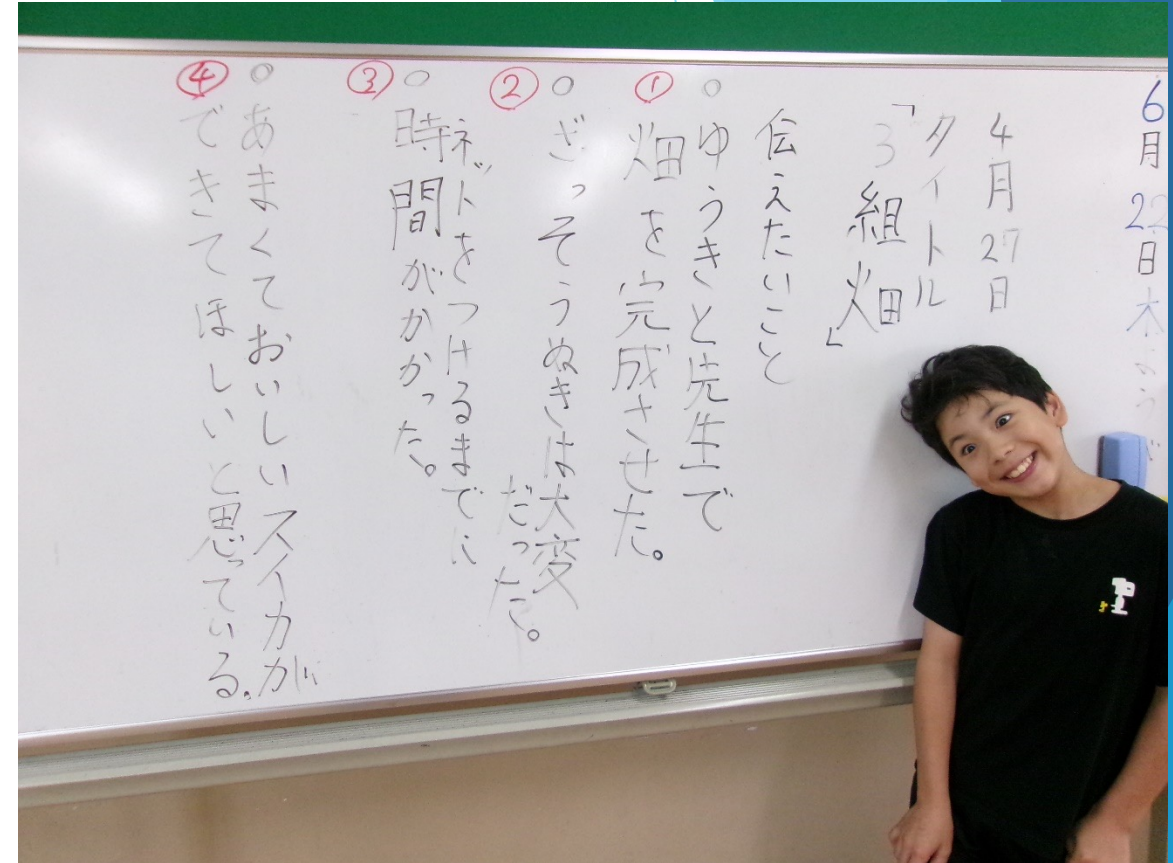 6月22日木
4月27日
タイトル
「3組畑」
伝えたいこと
① ○ゆうきと先生で
畑を完成させた。
② ○ざっそうぬきは大変
だった。
③ ○ネットをつけるまでに
時間がかかった。
④ ○あまくておいしいスイカが
できてほしいと思っている。